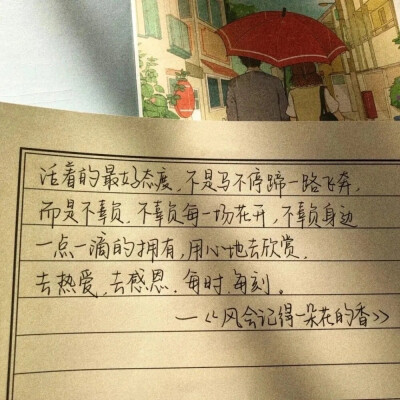 活着的最好态度,不是马不停蹄一路飞奔,
而是不辜负.不辜负每一场花开,不辜负身边
一点一滴的拥有,用心地去欣赏.
去热爱.去感恩.每时.每刻。
—《风会记得一朵花的香》